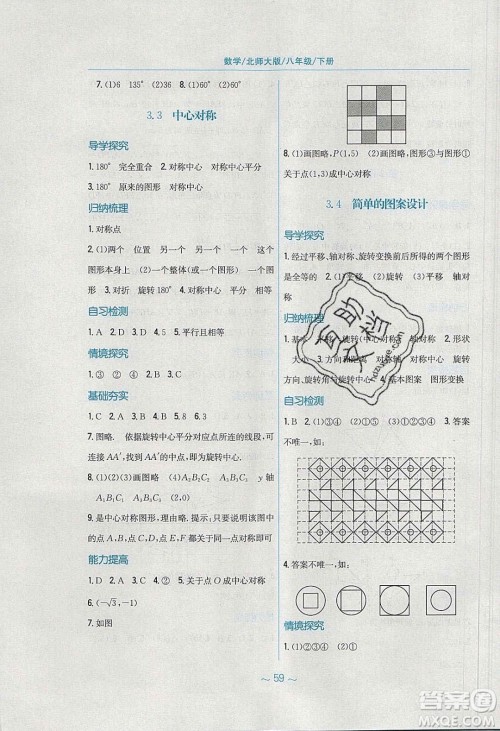 数学/北师大版/八年级/下册
7. (1)6 135° (2)3 8. (1)60° (2)60°
3.3 中心对称
导学探究
1. 180° 完全重合 2. 对称中心 对称中心平分
3. 180° 原来的图形 对称中心
归纳梳理
1. 对称点
2. (1)两个 位置 另一个 另一个 (2)一个
图形本身上 (2)一个整体(或一个图形) 一个图形
3. (1)对折 旋转180° (2)中心 平分 相等
自习检测
1. A 2. D 3. D 4. 5 5. 平行且相等
情境探究
1. ③ ② ④ 2. B 3. C
基础夯实
7. 图略. 依据旋转中心平分对应点所连的线段,可
连接AA′,则线段AA′的中点即是旋转中心
8. (1)(2)(3)画图略 A₂B₂C₂ A₃B₃C₃ y轴
A₁B₁C₁ A₃B₃C₃
9. 是中心对称图形,理由略. 提示:只要说明图中
的点A,点B,点C,点D都关于同一点对称即可
能力提高
1. D 2. A 3. C 4. D 5. 关于点O成中心对称
6. (-√3,-1)
7. 如图
8. (1)画图略,P(1,5) (2)画图略,图形③与图形①
关于点(1,3)成中心对称
3.4 简单的图案设计
导学探究
1. 经过平移、轴对称、旋转变换前后所得的两个图
形是全等的 2. (1)平移 (2)旋转 (3)平移 轴对
称
归纳梳理
1. 平移 轴对称 2. 形状
大小 3. 方向和距离 对称轴 对称中心 旋转中
心、旋转角与旋转方向 4. 基本图案 图形变换
自习检测
1. B 2. (1)①③④ (2)②⑤ 3. 答案
不唯一,如:
4. 答案不唯一,如:
情境探究
1. (1)①③④ (2)② (3)④
~ 59 ~
作业帮助
答案圈
MXQE.COM